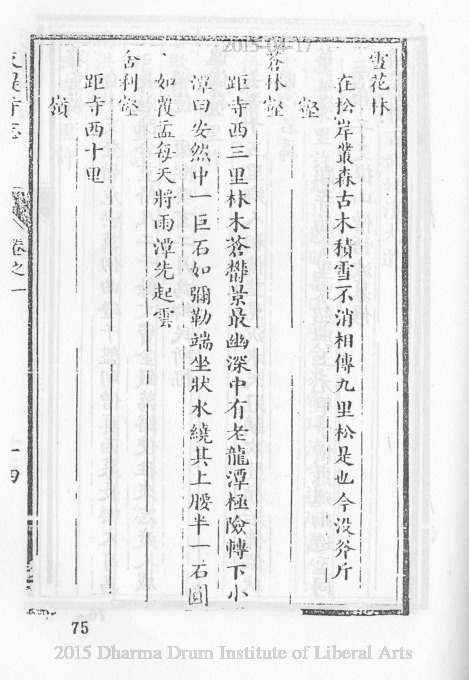 2015-04-17
雪花林
在松岸叢森古木積雪不消相傳九里松是也今没斧斤
壑
蒼林壑
距寺西三里林木蒼欝景最幽深中有老龍潭極險轉下小
潭曰安然中一巨石如彌勒端坐狀水繞其上腰半一石圓
如覆盂每天將雨潭先起雲
舍利壑
距寺西十里
嶺
支提寺志
卷之一
十四
75
2015 Dharma Drum Institute of Liberal Arts